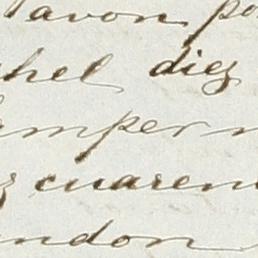 avon po
hel diez
amper
z cuaren
ndon